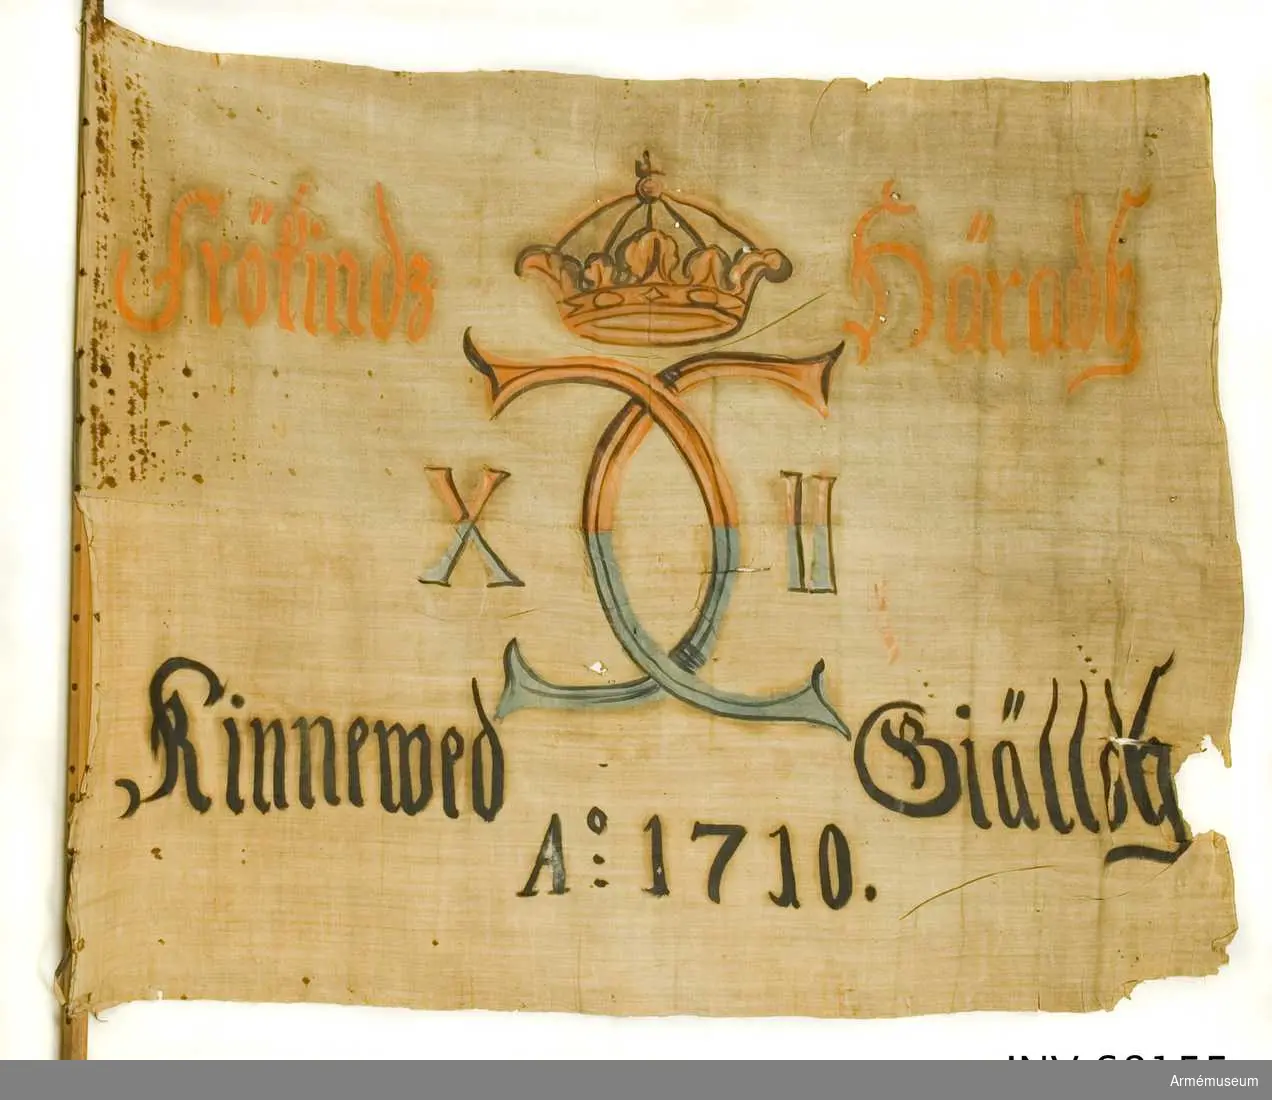 Frökinds Häradtz
X II
Kinnewed Giälls
Ao: 1710.
INV 68155
Armémuseum